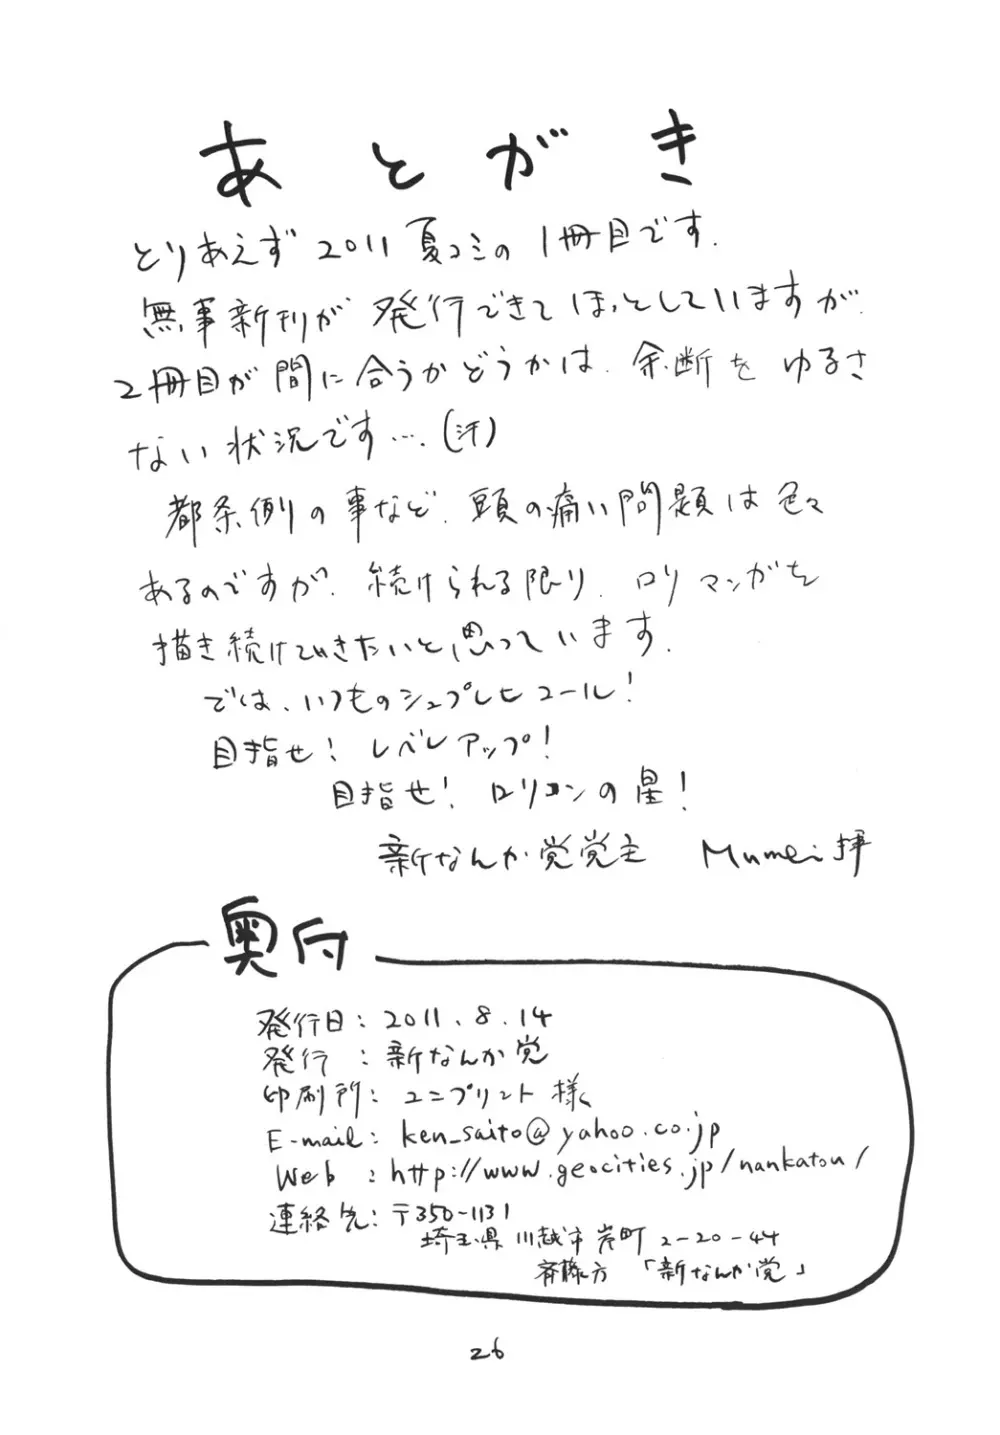 あとがき
とりあえず 2011 夏コミの 1冊目です.
無事新刊が 発行できて ほっとしていますが.
2冊目が 間に 合うかどうかは. 余断を ゆるさ
ない 状況です…. (汗)
都条例の事など. 頭の痛い問題は色々
あるのですが. 続けられる限り. ロリマンガを
描き続けていきたいと思っています.
では、いつものシュプレヒコール!
目指せ! レベルアップ!
目指せ! ロリコンの星!
新なんか党党主 Mumei 拝
奥付
発行日: 2011.8.14
発行 : 新なんか党
印刷所: ユニプリント 様
E-mail: ken_saito@yahoo.co.jp
Web : http://www.geocities.jp/nankatou/
連絡先: 〒350-1131
埼玉県 川越市 岸町 2-20-44
斉藤方 「新なんか党」
26